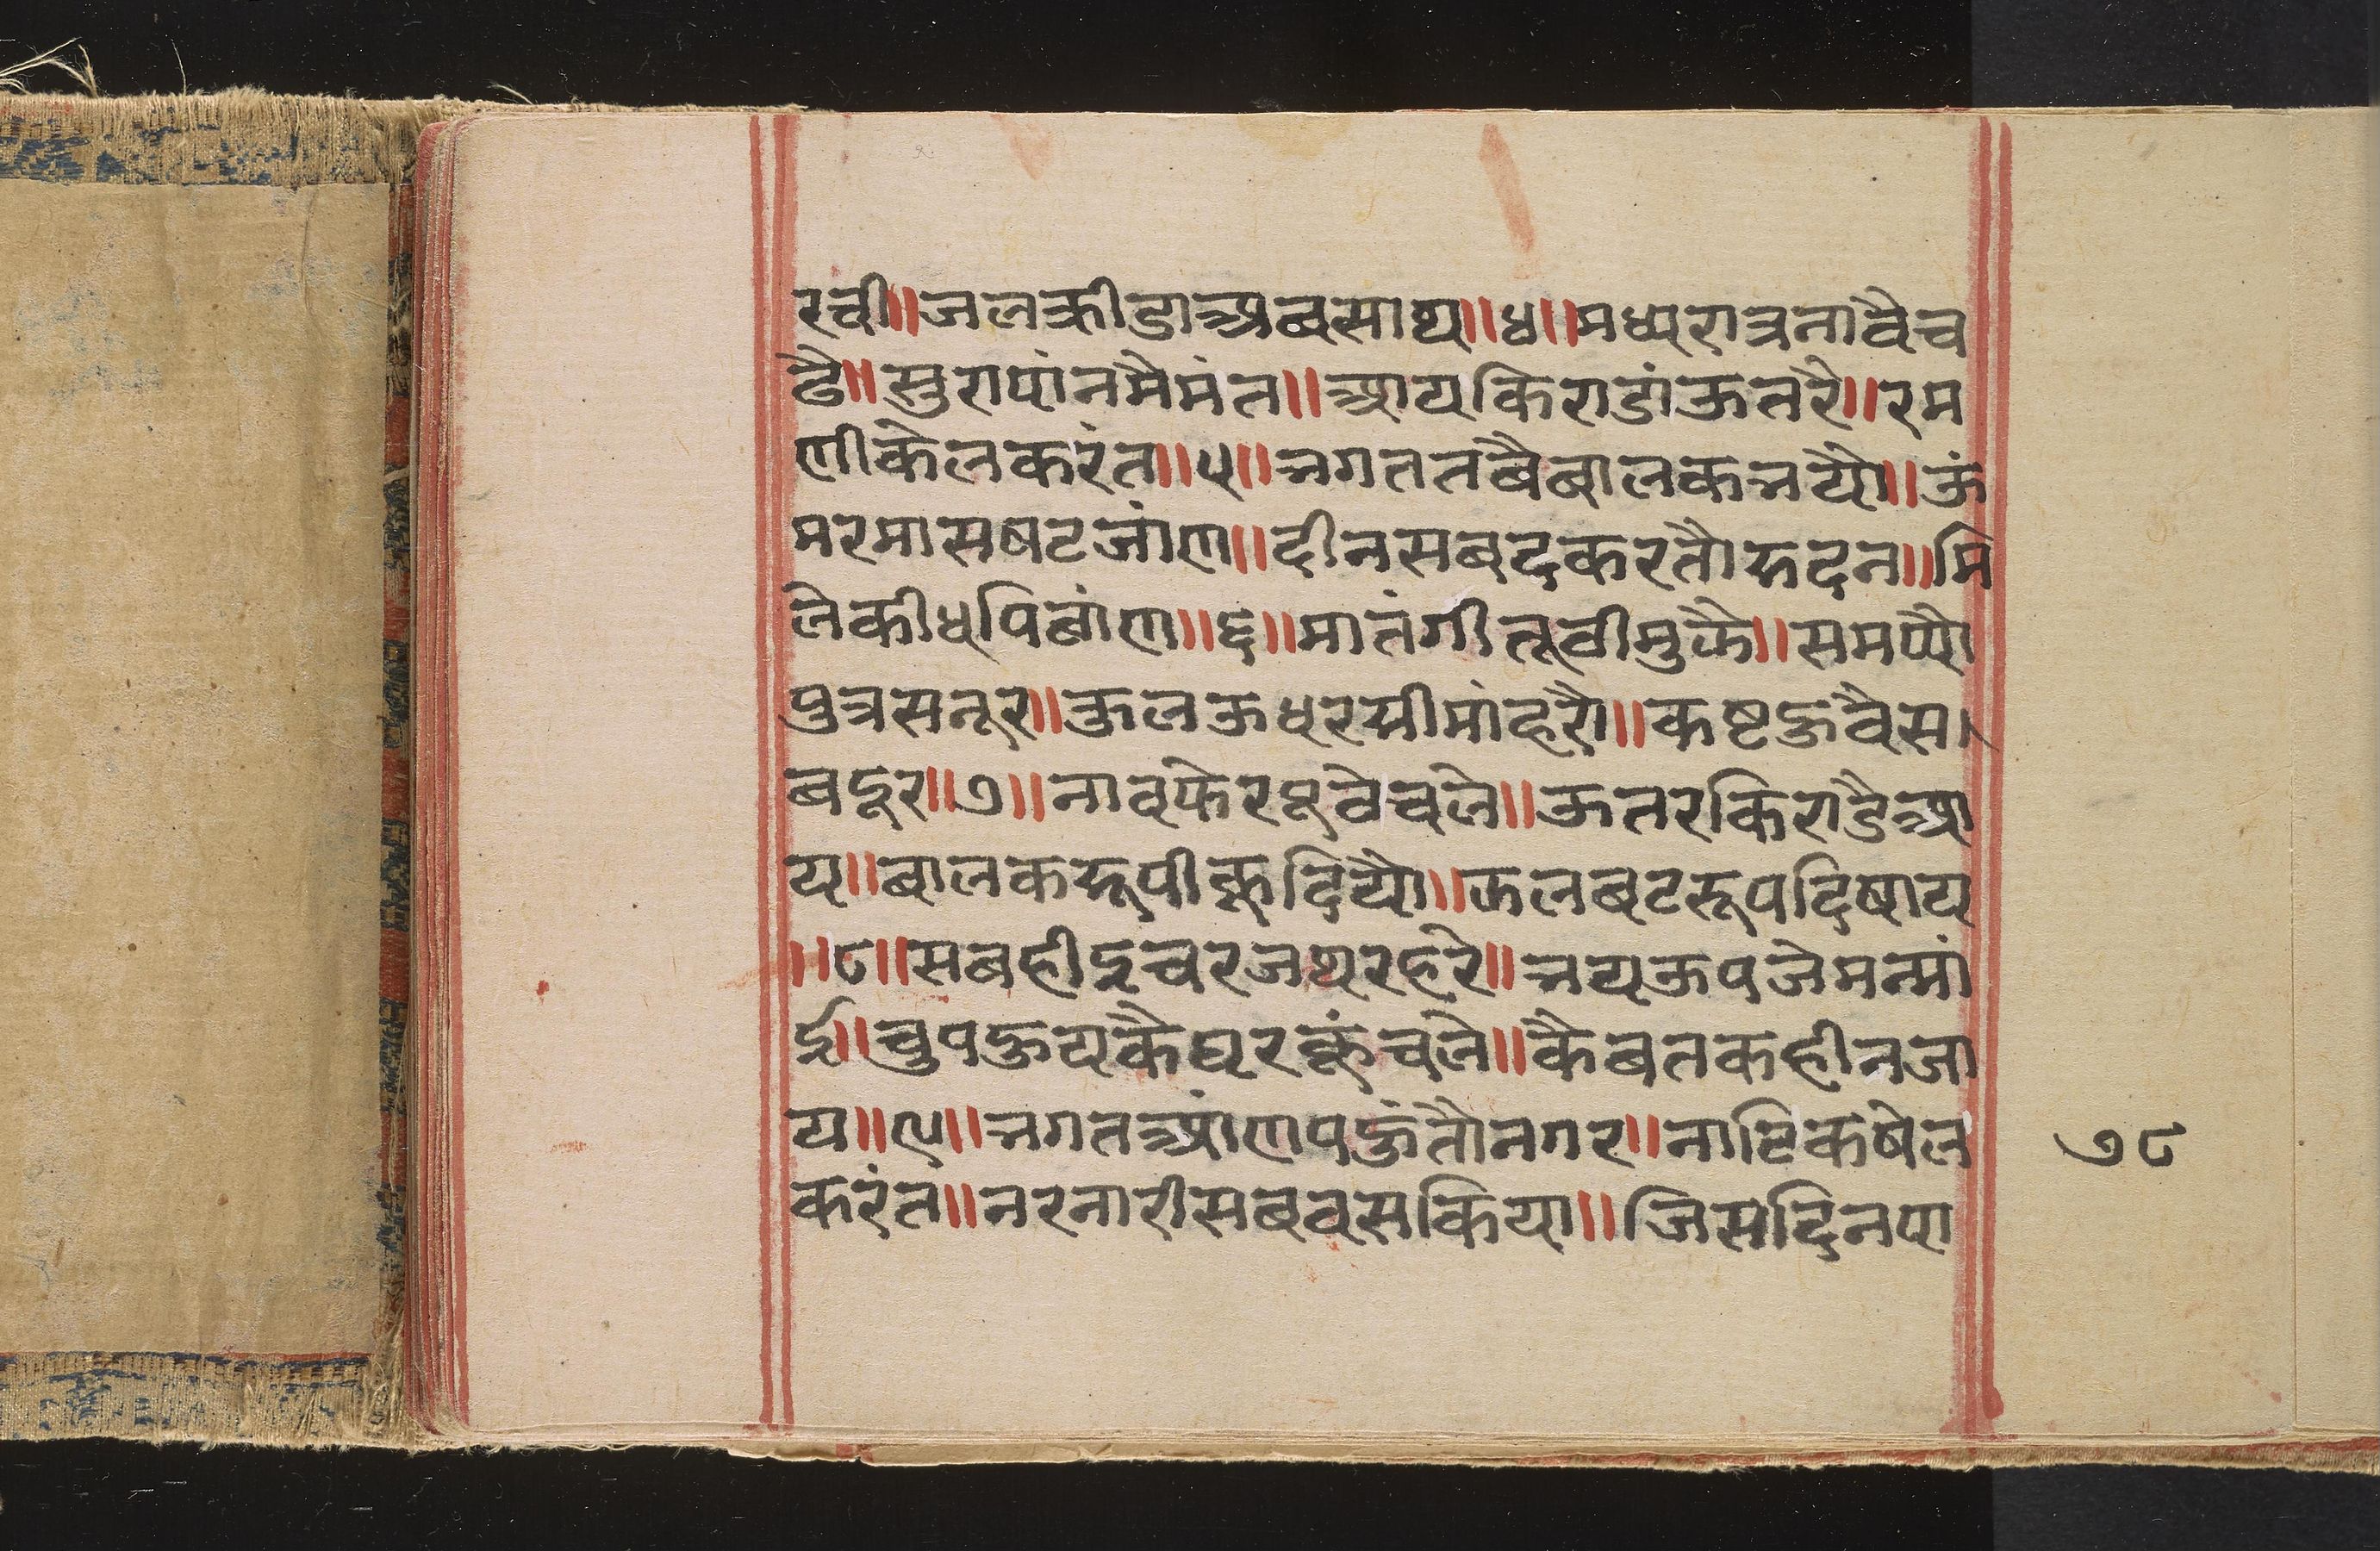 रची॥जलक्रीडाअबसाथ॥४॥मध्यरात्रनावैच
ढै॥सुरापांनमैमंत॥आयकिराडांऊतरै॥रम
णीकेलकरंत॥५॥भगततबैबालकभयौ॥ऊं
मरमासषटजांण॥दीनसबदकरतौरुदन॥मि
लेकीधपिबांण॥६॥मातंगीतूबीमुकै॥समप्यौ
पुत्रसनूर॥कुलऊधरसीमांहरौ॥कष्टहुवैस
बदूर॥७॥नावफेरपूवेचले॥ऊतरकिराडैआ
य॥बालकरूपीकूदियौ॥कलबटरूपदिषाय
॥८॥सबहीइचरजथरहरे॥भयऊपजेमनमां
ई॥चुपहुयकैघरकूंचले॥कैबतकहीनजा
य॥९॥भगतआंणपहुंतौनगर॥नाटिकषेल
करंत॥नरनारीसबबसकिया॥जिसदिनपा
७८